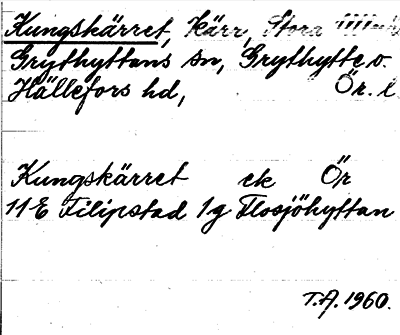 Kungskärret, kärr, Stora
Grythyttans sn, Grythytte o.
Hällefors hd, Ör. l
Kungskärret ek Ör
11E Filipstad 1g Flosjöhyttan
T.A. 1960.